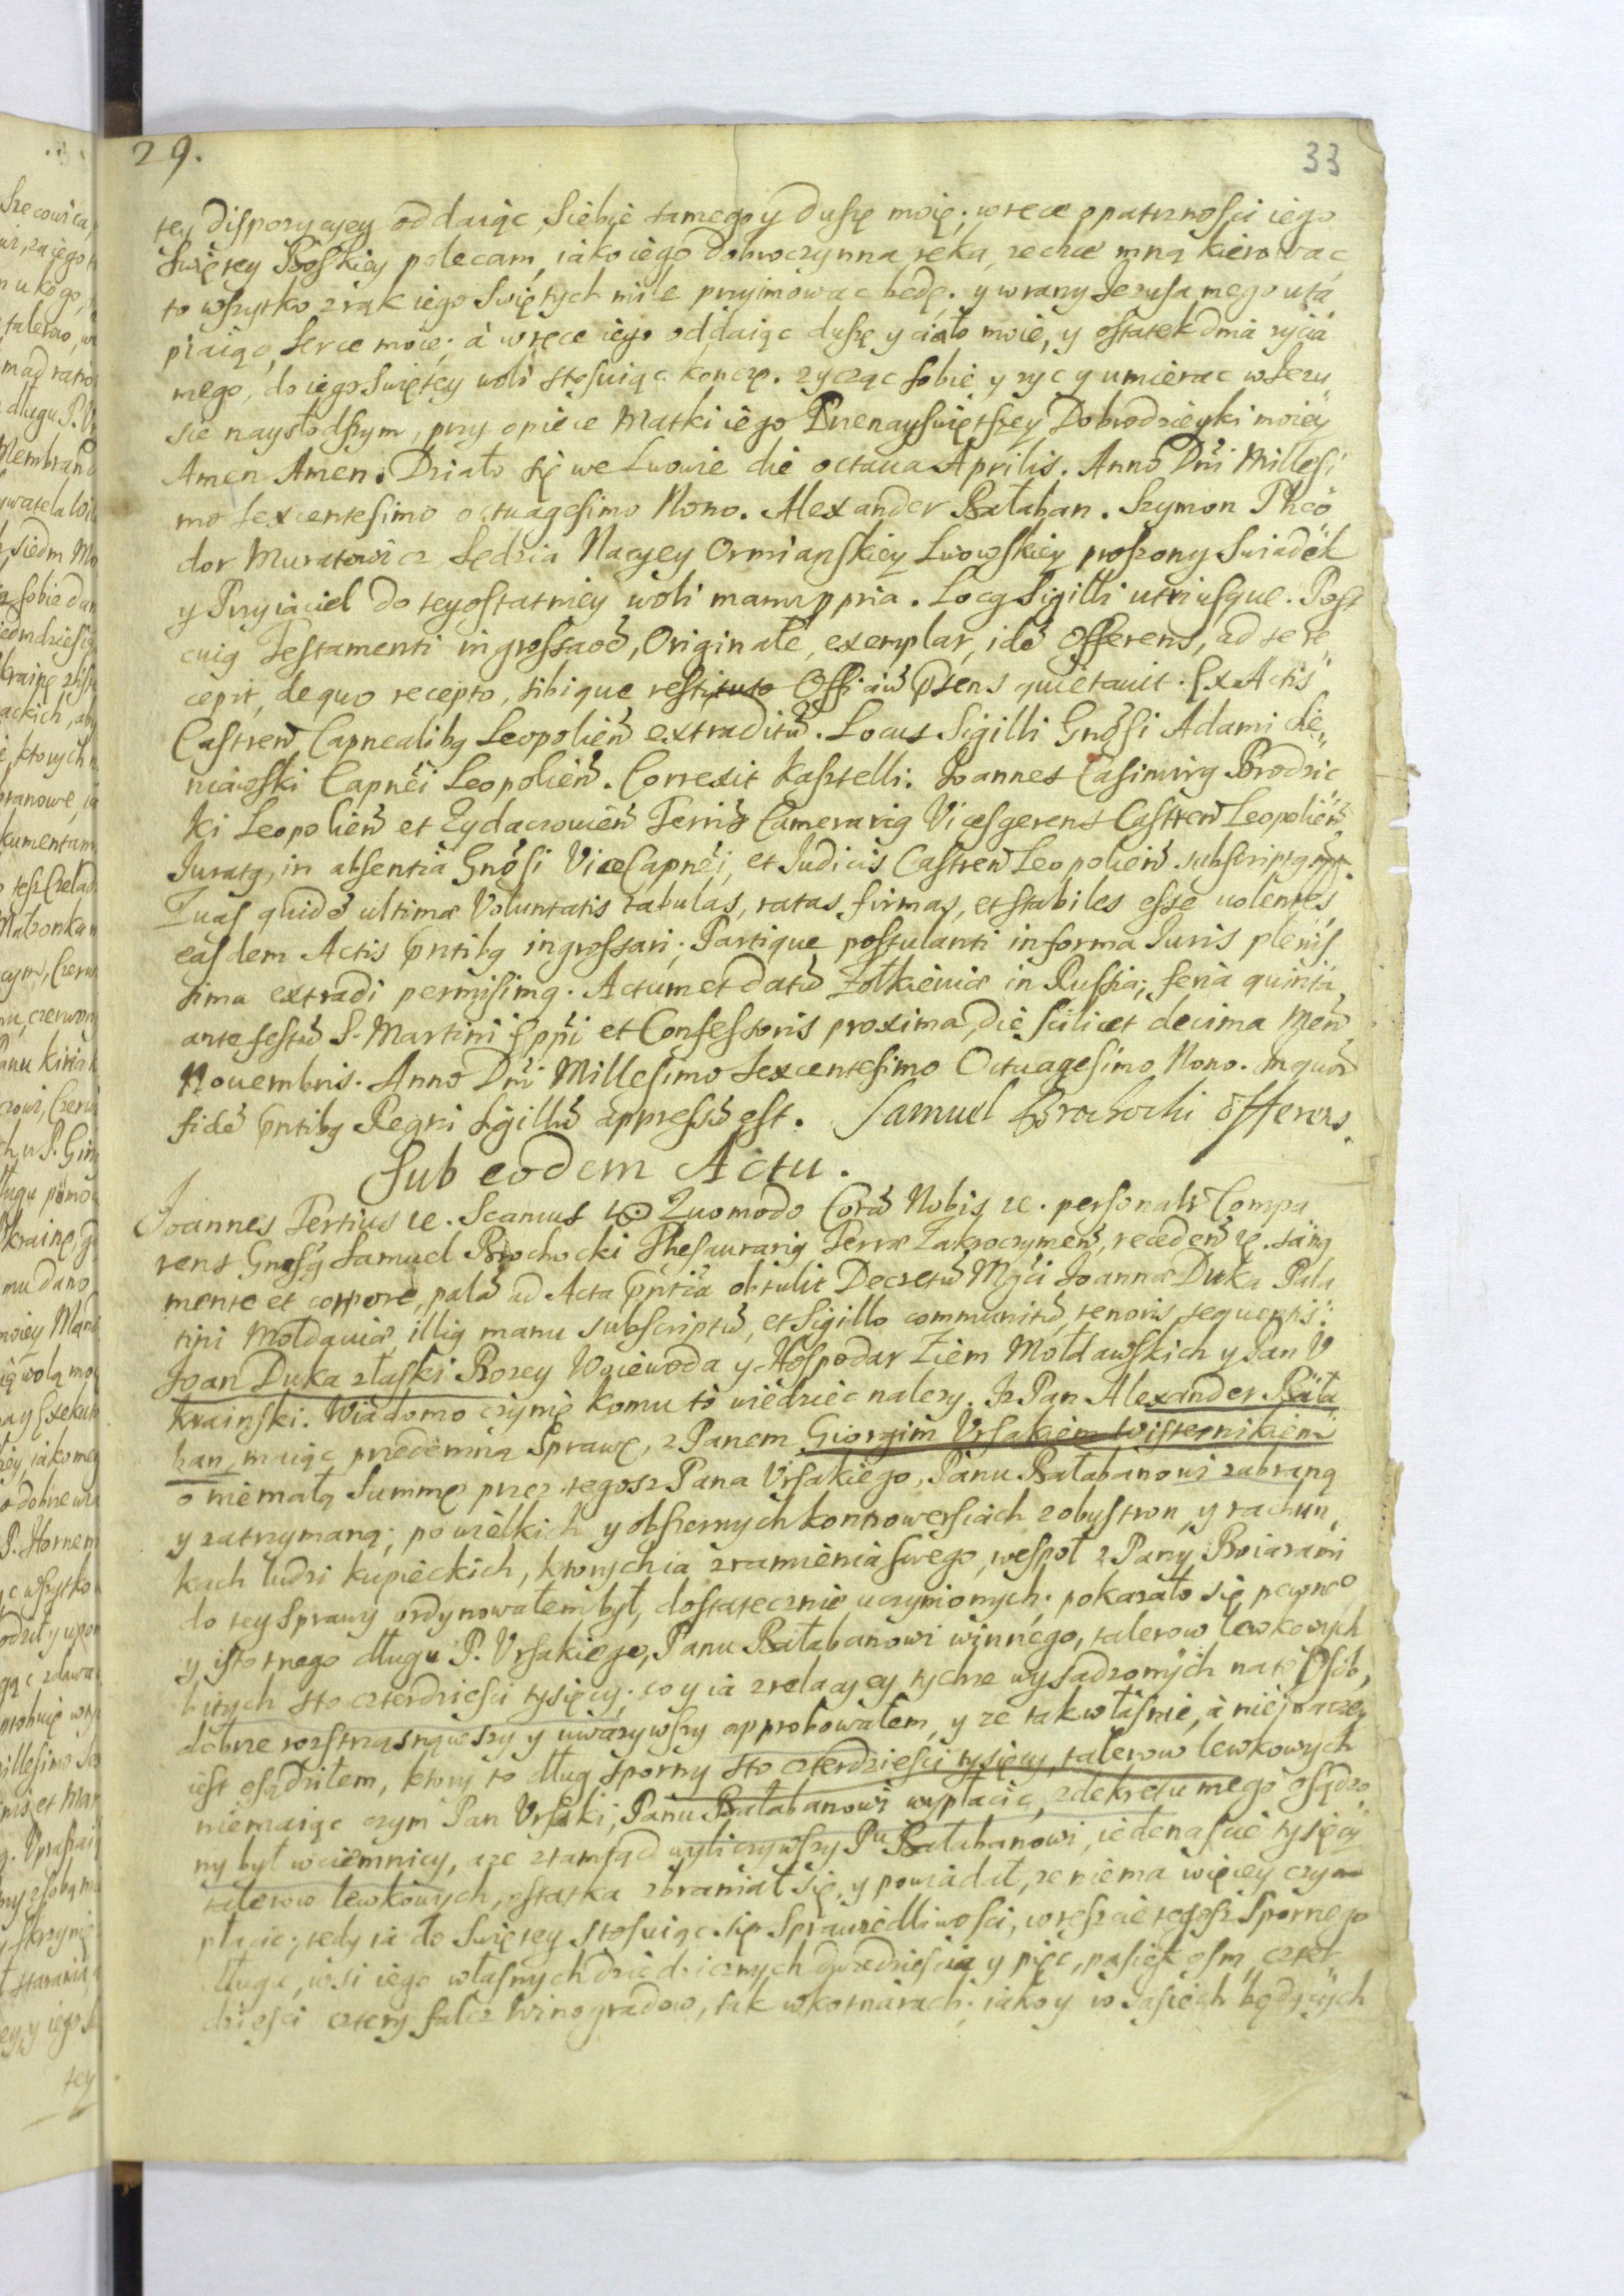 29.
33
tey dispozycyey oddaiąc, siebie samego y duszę moię, w ręce opatrznosci iego
Swiętey Boskiey polecam, iako iego dobroczynna ręka, zechce mną kierowac,
to wszytko z rąk iego Swiętych mile przyimowac będę. y w rany Jezusa mego uta
piaiąc, serce moie; à w ręce iego oddaiąc duszę y ciało moie, y ostatek dnia zycia
mego, do iego Swiętey woli stosuiąc koncze. zycząc sobie y zyc y umierac w Jezu
sie naysłodszym, przy opiece Matki iego Przenayswiętszey Dobrodzieyki moiey
Amen Amen. Działo się we Lwowie die octaua Aprilis. Anno Dñi Millesi
mo sexcentesimo octuagesimo Nono. Alexander Bałaban. Szymon Theo
dor Muratowicz Sędzia Nacyey Ormianskiey Lwowskiey proszony Swiadek
y Przyiaciel do tey ostatniey woli manu ppria. Locq Sigilli utriusque. Post
cuiq Testamenti ingrossaõẽ, Originale, exemplar, idẽ Offerens, ad se re
cepit, de quo recepto, sibique restituto Officiũ p̃sens quietauit. Ex Actis
Castren̄ Capnealibq Leopolien̄ extraditũ. Locus Sigilli Gnõsi Adami Sie,,
niawski Capnẽi Leopolien̄. Correxit Kasztelli: Joannes Casimirq Brodzic
ki Leopolien̄ et Zydaczouien̄ Terris Camerariq Vicesgerens Castren̄ Leopolien̄
Juratq, in absentia Gnõsi ViceCapnẽi, et Judicis Castren̄ Leopolien̄ subscriptq mpp.
Quas quidẽ ultimæ Voluntatis tabulas, ratas, firmas, et stabiles esse uolentes
easdem Actis p̃ntibq ingrossari; Partique postulanti in forma Juris plenis
sima extradi permisimq. Actum et datũ Zołkieuiæ in Russia; feria quinta
ante festũ S. Martini Eppi et Confessoris proxima, die scilicet decima Men̄
Nouembris. Anno Dñi Millesimo Sexcentesimo Octuagesimo Nono. In quorũ
fidẽ p̃ntibq Regni Sigillũ appressũ est. Samuel Brochocki offerens.
Sub eodem Actu.
Joannes Tertius &c. Scamus Quomodo Corã Nobis &c. personalr̃ Compa
rens Gnosq Samuel Brochocki Thesaurariq Terræ Zakroczymen̄, receden̄ &c. sanq
mente et corpore, palã ad Acta p̃ntia obtulit Decretũ Mgci Joannæ Duka Pala
tini Moldauiæ, illiq manu subscriptũ, et Sigillo communitũ, tenoris sequentis:
Joan Duka z łaski Bozey Woiewoda y Hospodar Ziem Mołdawskich y Pan V
krainski. Wiadomo czynię komu to wiedziec nalezy. Jz Pan Alexander Bała
ban, maiąc przedemną Sprawę, z Panem Giorgim Vrsakiem Wisternikiem
o niemałą Summę przez tegosz Pana Vrsakiego, Panu Bałabanowi zabraną
y zatrzymaną; po wielkich y obszernych kontrowersiach z obystron, y rachun,
kach ludzi kupieckich, ktorych ia z ramienia swego, wespoł z Pany Boiarami
do tey Sprawy ordynowałem był, dostatecznie uczynionych; pokazało się pewne°
y istotnego długu P. Vrsakiego, Panu Bałabanowi winnego, talerow lewkowych
bitych sto czterdziesci tysięcy; co y ia z relacyey tychze wysadzonych na to Osob,
dobrze rozstrząsnąwszy y uwazywszy approbowałem, y ze tak własnie, à nie jnaczey
iest osądziłem, ktory to dług sporny sto czterdziesci tysięcy, talerow lewkowych
niemaiąc czym Pan Vrsaki; Panu Bałabanowi wypłacic, z dekretu mego osądzo
ny był w ciemnicy, aze ztamtąd wyliczywszy Pu Bałabanowi, iedenascie tysięcy
talerow lewkowych, ostatka zbraniał się, y powiadał, ze niema więcey czym
płacic; tedy ia do Swiętey stosuiąc się Sprawiedliwosci, w reszcie tegosz Spornego
długu, wsi iego własnych dziedzicznych dwadziescia y pięc, pasiek osm, czter
dziesci cztery falcz Winogradow, tak w kotnarach, iako y w Jasiech będących